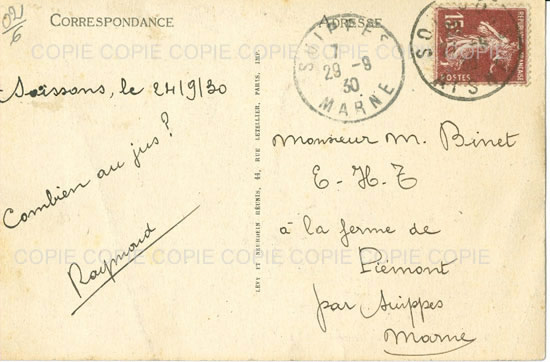 02/6
CORRESPONDANCE
ADRESSE
COPIE COPIE COPIE COPIE COPIE COPIE COPIE
SUIPPES
7
29 -8
30
MARNE
15
POSTES
Soissons, le 24/9/30
Combien au jus ?
Raymond
LEVY ET NEURDEIN RÉUNIS, 44, RUE LETELLIER, PARIS, IMP.
Monsieur M. Binet
E-H-Z
à la ferme de
Piémont
par Suippes
Marne
COPIE COPIE COPIE COPIE COPIE COPIE COPIE